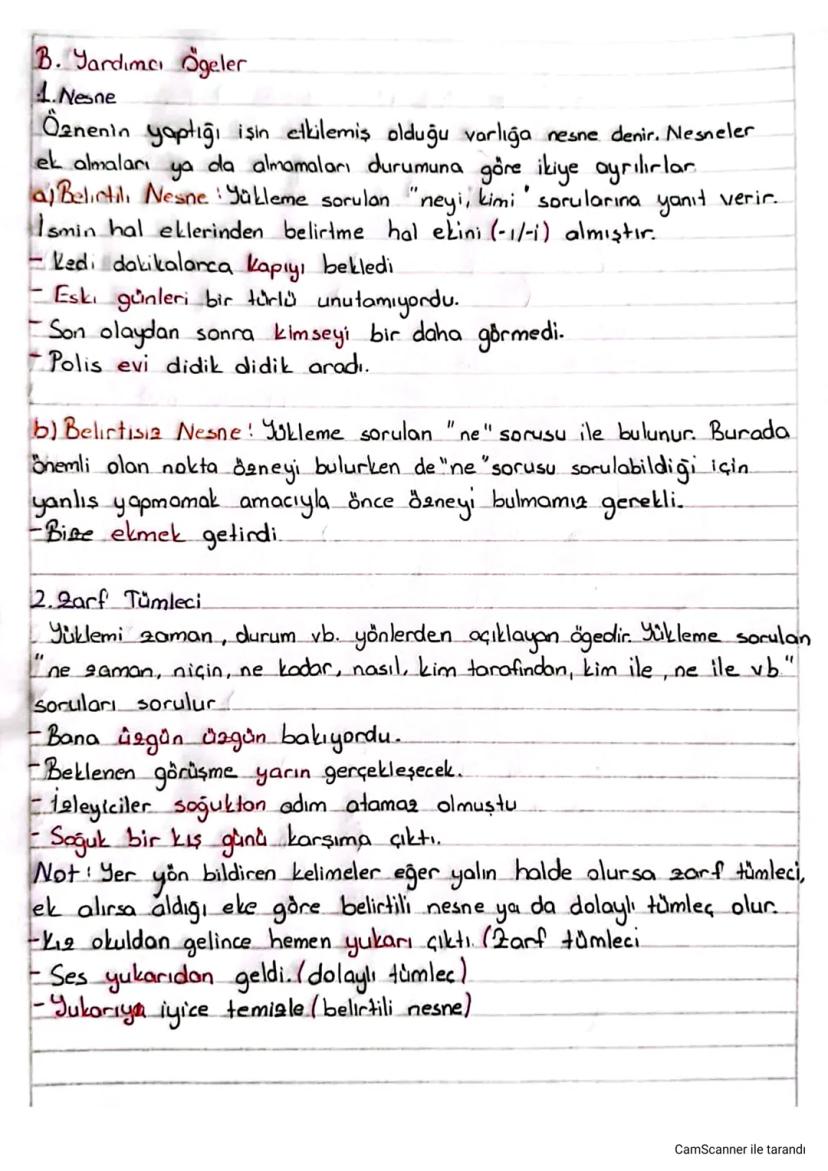 B. Yardımcı Ögeler
1. Nesne
Öznenin yaptığı işin etkilemiş olduğu varlığa nesne denir. Nesneler
ek almaları ya da almamaları durumuna göre ikiye ayrılırlar
a) Belirtili Nesne: Yükleme sorulan "neyi, kimi" sorularına yanıt verir.
İsmin hal eklerinden belirtme hal ekini (-ı/-i) almıştır.
- Kedi dakikalarca kapıyı bekledi
- Eski günleri bir türlü unutamıyordu.
- Son olaydan sonra kimseyi bir daha görmedi.
- Polis evi didik didik aradı.
b) Belirtisiz Nesne: Yükleme sorulan "ne" sorusu ile bulunur. Burada
önemli olan nokta özneyi bulurken de "ne" sorusu sorulabildiği için
yanlış yapmamak amacıyla önce özneyi bulmamız gerekli.
- Bize ekmek getirdi.
2. Zarf Tümleci
Yüklemi zaman, durum vb. yönlerden açıklayan ögedir. Yükleme sorulan
"ne zaman, niçin, ne kadar, nasıl, kim tarafından, kim ile, ne ile vb"
soruları sorulur
- Bana üzgün üzgün bakıyordu.
- Beklenen görüşme yarın gerçekleşecek.
- İzleyiciler soğuktan adım atamaz olmuştu
- Soğuk bir kış günü karşıma çıktı.
Not: Yer yön bildiren kelimeler eğer yalın halde olursa zarf tümleci,
ek alırsa aldığı eke göre belirtili nesne ya da dolaylı tümleç olur.
- Kız okuldan gelince hemen yukarı çıktı. (Zarf tümleci
- Ses yukarıdan geldi. (dolaylı tümleç)
- Yukarıya iyice temizle (belirtili nesne)
CamScanner ile tarandı